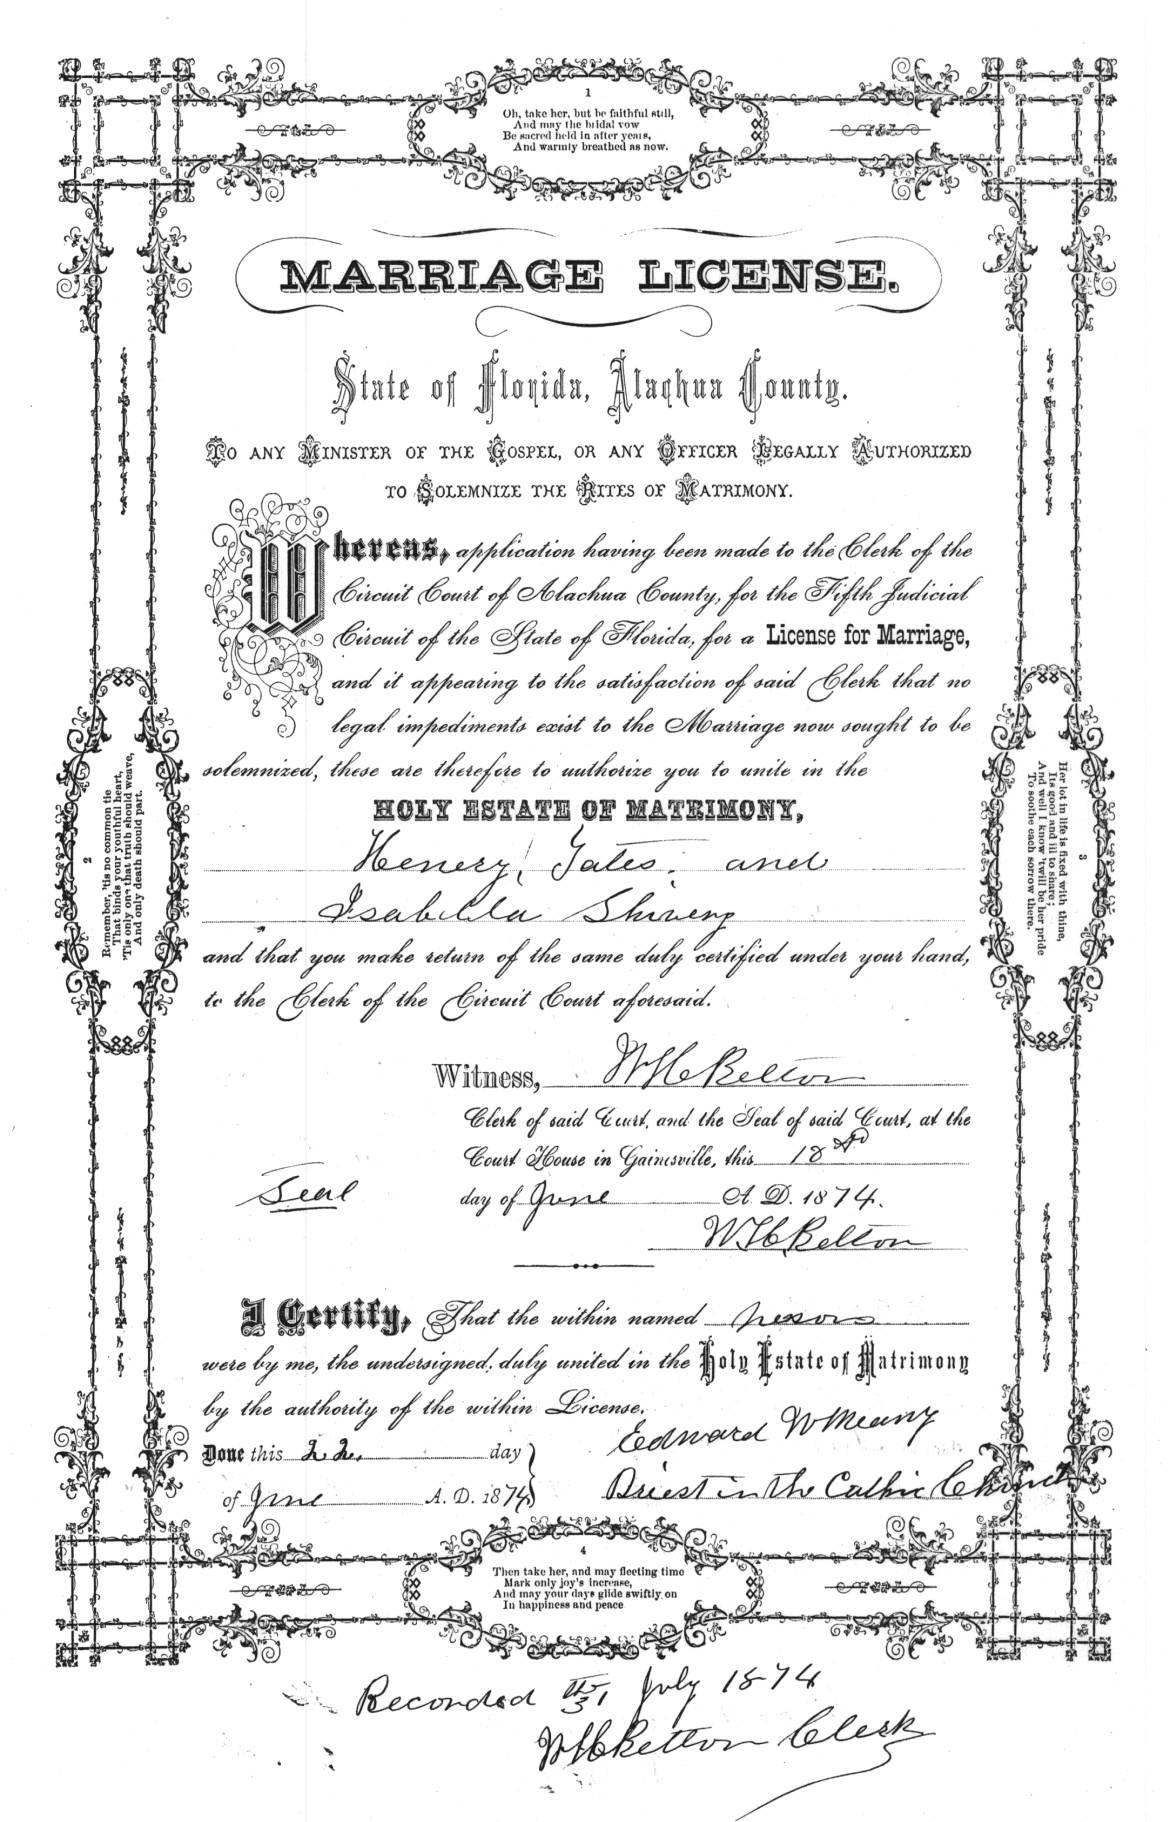 1
Oh, take her, but be faithful still,
And may the bridal vow
Be sacred held in after years,
And warmly breathed as now.
MARRIAGE LICENSE.
State of Florida, Alachua County.
TO ANY MINISTER OF THE GOSPEL, OR ANY OFFICER LEGALLY AUTHORIZED
TO SOLEMNIZE THE RITES OF MATRIMONY.
Whereas, application having been made to the Clerk of the
Circuit Court of Alachua County, for the Fifth Judicial
Circuit of the State of Florida, for a License for Marriage,
and it appearing to the satisfaction of said Clerk that no
legal impediments exist to the Marriage now sought to be
solemnized, these are therefore to authorize you to unite in the
HOLY ESTATE OF MATRIMONY,
Henery Yates and
Isabella Shivery
and that you make return of the same duly certified under your hand,
to the Clerk of the Circuit Court aforesaid.
Witness, W H Belton
Clerk of said Court, and the Seal of said Court, at the
Court House in Gainesville, this 18
Seal
day of June A. D. 1874.
W H Belton
I Certify, That the within named
were by me, the undersigned, duly united in the Holy Estate of Matrimony
by the authority of the within License.
Done this 22. day
of June A. D. 1874
Edward W Meany
Priest in the Cathic Church
2
Remember, 'tis no common tie
That binds your youthful heart,
'Tis only one that truth should weave,
And only death should part.
3
Her lot in life is fixed with thine,
Its good and ill to share;
And well I know 'twill be her pride
To soothe each sorrow there.
4
Then take her, and may fleeting time
Mark only joy's increase,
And may your days glide swiftly on
In happiness and peace
Recorded July 1874
W H Belton Clerk